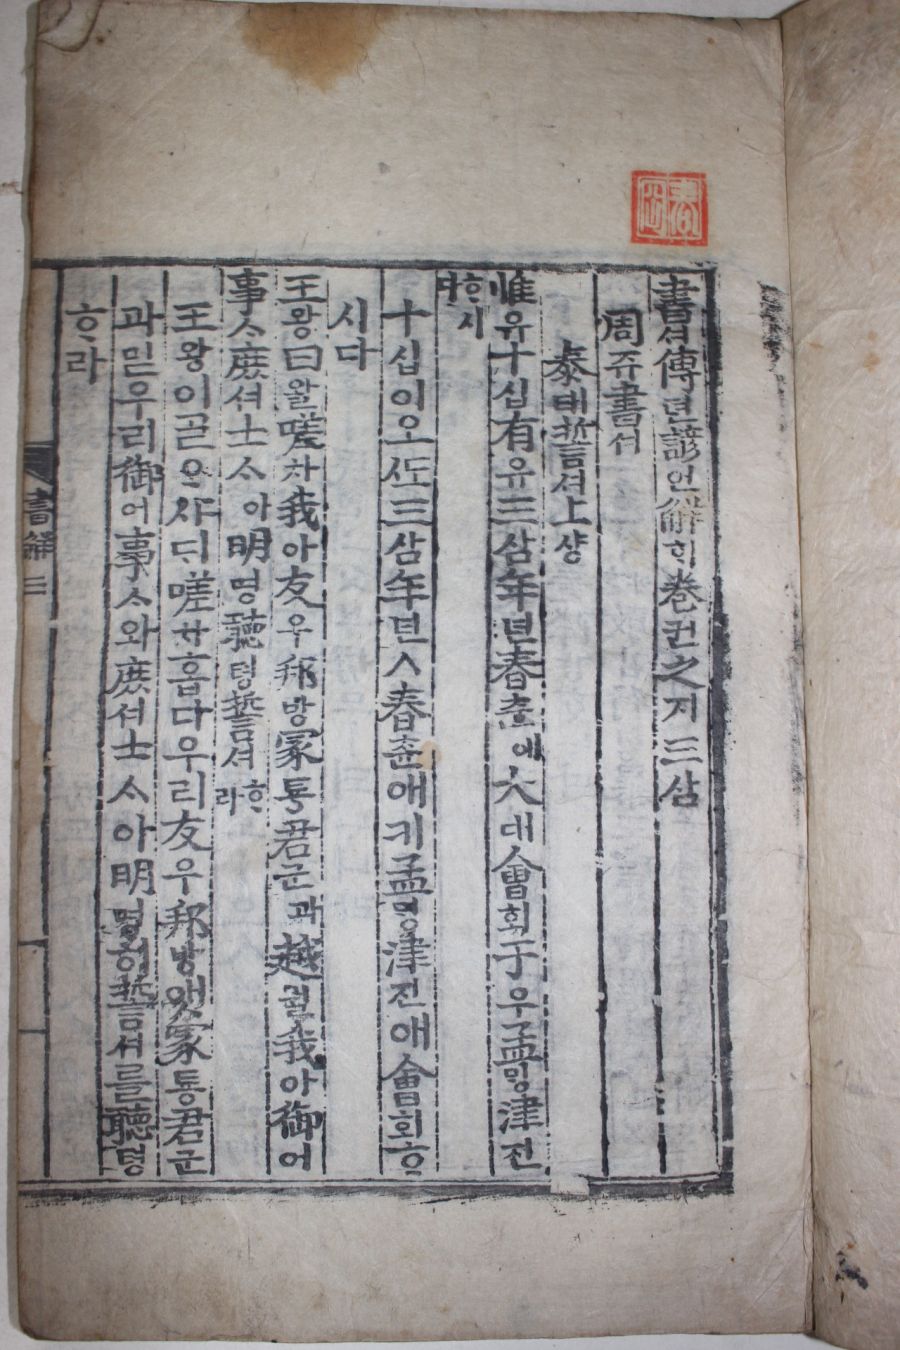 書셔傳뎐諺언解ᄒᆡ卷권之지三삼
周쥬書셔
泰태誓셔上샹
惟유十십有유三삼年년春츈에大대會회于우孟ᄆᆡᆼ津진
ᄒᆞ시다
十십이오ᄯᅩ三삼年년ㅅ春츈애키孟ᄆᆡᆼ津진애會회ᄒᆞ
시다
王왕曰왈嗟차我아友우邦방冢통君군과越월我아御어
事ᄉᆞ庶셔士ᄉᆞ아明명聽텽誓셔ᄒᆞ라
王왕이ᄀᆞᆯᄋᆞ샤ᄃᆡ嗟차흡다우리友우邦방앳冢통君군
과믿우리御어事ᄉᆞ와庶셔士ᄉᆞ아明명히誓셔를聽텽
ᄒᆞ라
書解三